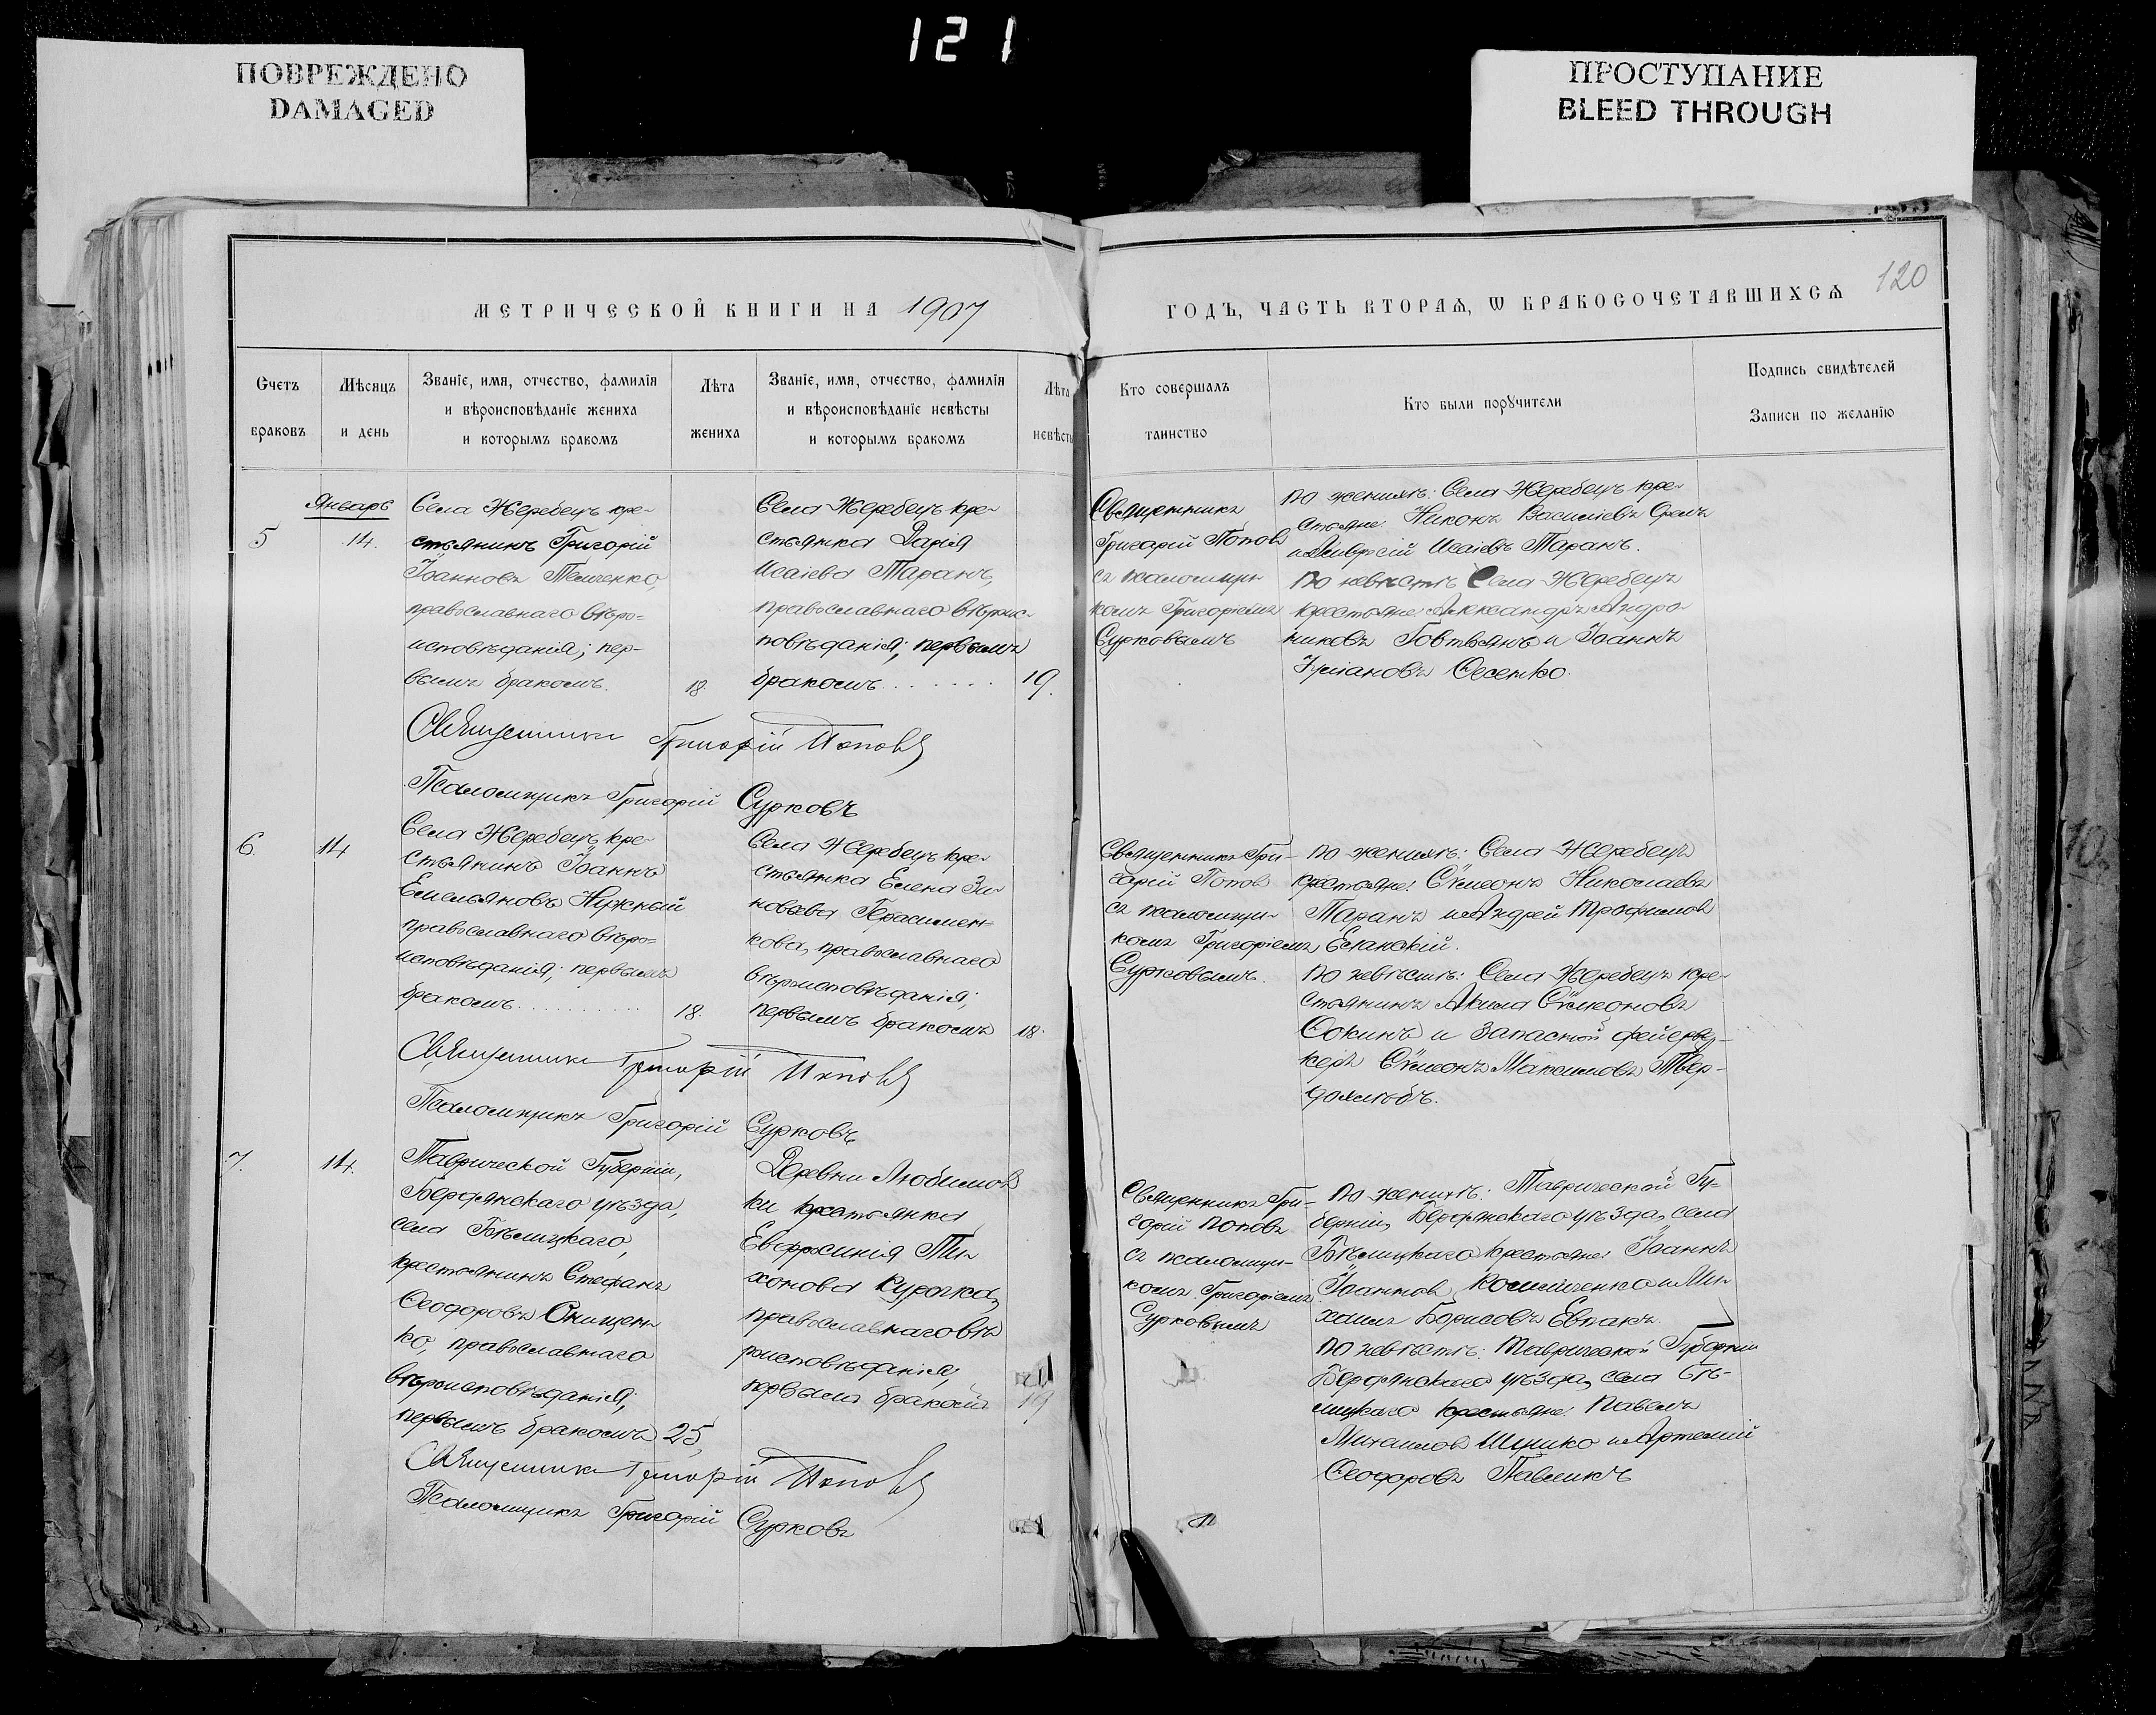 121
ПОВРЕЖДЕНО
DAMAGED
ПРОСТУПАНИЕ
BLEED THROUGH
МЕТРИЧЕСКОЙ КНИГИ НА 1907
ГОДЪ, ЧАСТЬ ВТОРАЯ, Ѡ БРАКОСОЧЕТАВШИХСѦ
120
Счетъ
браковъ
Мѣсяцъ
и день
Званіе, имя, отчество, фамилія
и вѣроисповѣданіе жениха
и которымъ бракомъ
Лѣта
жениха
Званіе, имя, отчество, фамилія
и вѣроисповѣданіе невѣсты
и которымъ бракомъ
Лѣта
невѣсты
Кто совершалъ
таинство
Кто были порꙋчители
Подпись свидѣтелей
Записи по желанію
5
Январь
14.
Села Жеребецъ кре-
стьянинъ Григорій
Іоанновъ
православнаго вѣро=
исповѣданія; пер-
вымъ бракомъ.
18.
Села Жеребецъ кре-
стьянка Дарія
Исаіева Таранъ,
православнаго вѣроис-
повѣданія; первымъ
бракомъ.......
19.
Священникъ
Григорій Поповъ
съ псаломщи-
комъ Григоріемъ
Сурковымъ
По женихѣ: Села Жеребецъ кре-
стьяне: Никонъ Василіевъ Орелъ
и Исаіевъ Таранъ.
По невѣстѣ Села Жеребецъ
крестьяне: Александръ Андро-
никовъ Говтвянъ и Іоаннъ
Іуліановъ Фесенко.
Священникъ Григорій Поповъ
Псаломщикъ Григорій Сурковъ
6.
14
Села Жеребецъ кре-
стьянинъ Іоаннъ
Емельяновъ Нужный
православнаго вѣро=
исповѣданія; первымъ
бракомъ..........
18.
Села Жеребецъ кре-
стьянка Елена Зи-
новьева Герасимен-
кова, православнаго
вѣроисповѣданія;
первымъ бракомъ
18.
Священникъ Гри-
горій Поповъ
съ псаломщи-
комъ Григоріемъ
Сурковымъ.
По женихѣ: Села Жеребецъ
крестьяне: Сѵмеонъ Николаевъ
Таранъ и Андрей Трофимовъ
По невѣстѣ: Села Жеребецъ кре-
стьянинъ Акила Сѵмеоновъ
Фокинъ и Запасной фейервер-
керъ Сѵмеонъ Максимовъ Твер-
дохлѣбъ.
Священникъ Григорій Поповъ
Псаломщикъ Григорій Сурковъ
7.
14.
Таврической Губерніи,
Бердянскаго уѣзда,
села Бѣлицкаго,
крестьянинъ Стефанъ
Феодоровъ Онищен-
ко, православнаго
вѣроисповѣданія;
первымъ бракомъ
25,
Деревни Любимов-
ки крестьянка
Евфросинія Ти-
хонова Курочка,
православнаго вѣ-
роисповѣданія,
первымъ бракомъ
19
Священникъ Гри-
горій Поповъ
съ псаломщи-
комъ Григоріемъ
Сурковымъ
По женихѣ: Таврической Гу-
берніи, Бердянскаго уѣзда, села
Бѣлицкаго крестьяне: Іоаннъ
Іоанновъ и Ми-
хаилъ Борисовъ Евпакъ.
По невѣстѣ: Таврической Губерніи
Бердянскаго уѣзда, села Бѣ-
лицкаго крестьяне: Павелъ
Михаиловъ и Артемій
Феодоровъ Павликъ
Священникъ Григорій Поповъ
Псаломщикъ Григорій Сурковъ